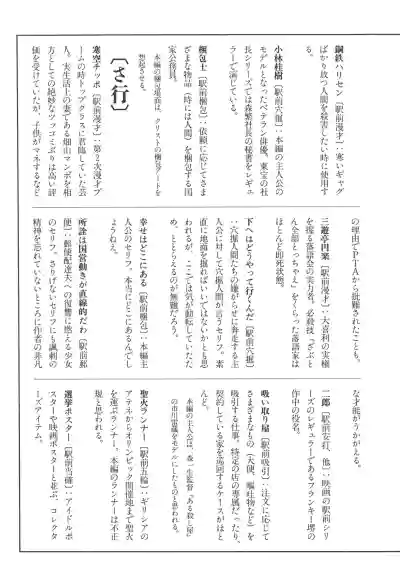 鋼鉄ハリセン［駅前漫才］…寒いギャグ
ばかり放つ人間を殺害したい時に使用す
る。
小林桂樹［駅前穴掘］…本編の主人公の
モデルとなったベテラン俳優。東宝の社
長シリーズでは森繁社長の秘書をレギュ
ラーで演じている。
梱包士［駅前梱包］…依頼に応じてさま
ざまな物品（時には人間）を梱包する国
家公務員。
本編の梱包場面は、クリストの梱包アートを
想起させる。
［さ行］
寒空チッポ［駅前漫才］…第２次漫才ブ
ームの時トップクラスに君臨していた芸
人。実生活上の妻である畑山マンボを相
方としての絶妙なツッコミぶりは高い評
価を受けていたが、子供がマネするなど
の理由でＰＴＡから批難されたことも。
三遊亭円楽［駅前漫才］…大喜利の実権
を握る落語会の実力者。必殺技『ざぶと
ん全部とっちゃえ』をくらった落語家は
ほとんど即死状態。
下へはどうやって行くんだ［駅前穴掘］
…穴掘人間たちの嫌がらせに奔走する主
人公に対して穴掘人間が言うセリフ。素
直に地面を掘ればいいではないかとも思
われるが、ここでは気が動転していたた
め、ととらえるのが無難だろう。
幸せはどこにある［駅前梱包］…本編主
人公のセリフ。本当にどこにあるんでし
ょうねえ。
所詮は国営動きが直線的だわ［駅前郵
便］…郵便配達夫への復讐に燃える少女
のセリフ。さりげないセリフにも諷刺の
精神を忘れていないところに作者の非凡
な才能がうかがえる。
二郎［駅前安打、他］…映画の駅前シリ
ーズのレギュラーであるフランキー堺の
作中の役名。
吸い取り屋［駅前吸引］…注文に応じて
さまざまなもの（大便、嘔吐物など）を
吸引する仕事。特定の店の専属だったり、
契約している家を巡回するケースがほと
んど。
本編の主人公は、森一生監督『ある殺し屋』
の市川雷蔵をモデルにしたものと思われる。
聖火ランナー［駅前五輪］…ギリシアの
アテネからオリンピック開催地まで聖火
を運ぶランナー。本編のランナーは不正
規と思われる。
選挙ポスター［駅前当確］…アイドルポ
スターや映画ポスターと並ぶ、コレクタ
ーズアイテム。